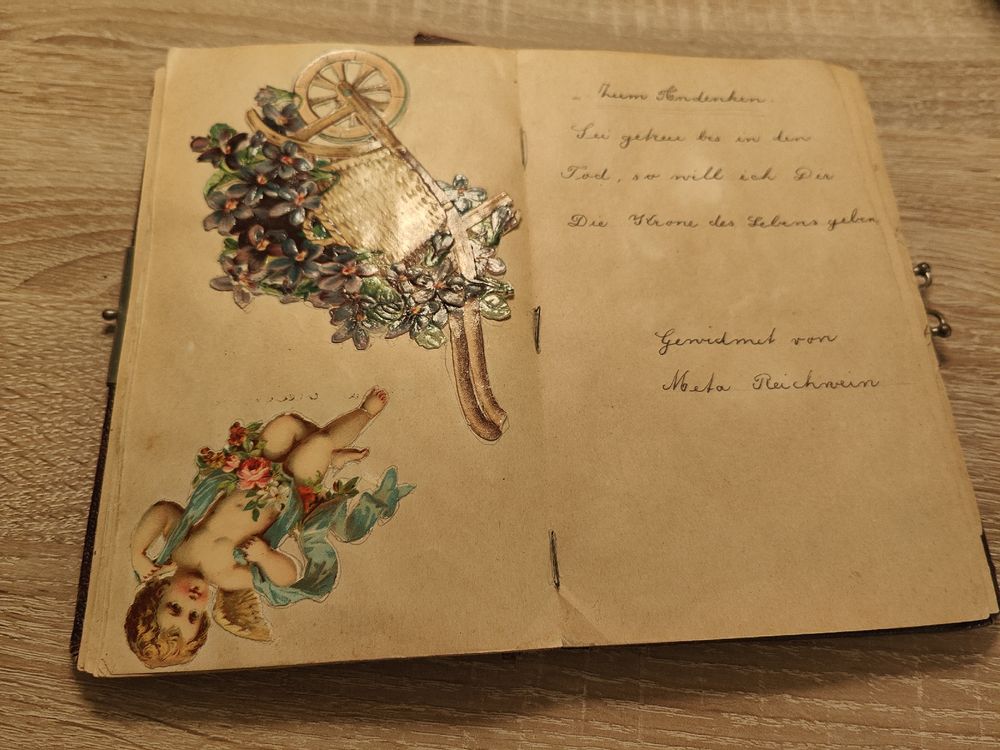 Zum Andenken.
Sei getreu bis in den
Tod, so will ich Dir
Die Krone des Lebens geben
Gewidmet von
Meta Reichwein